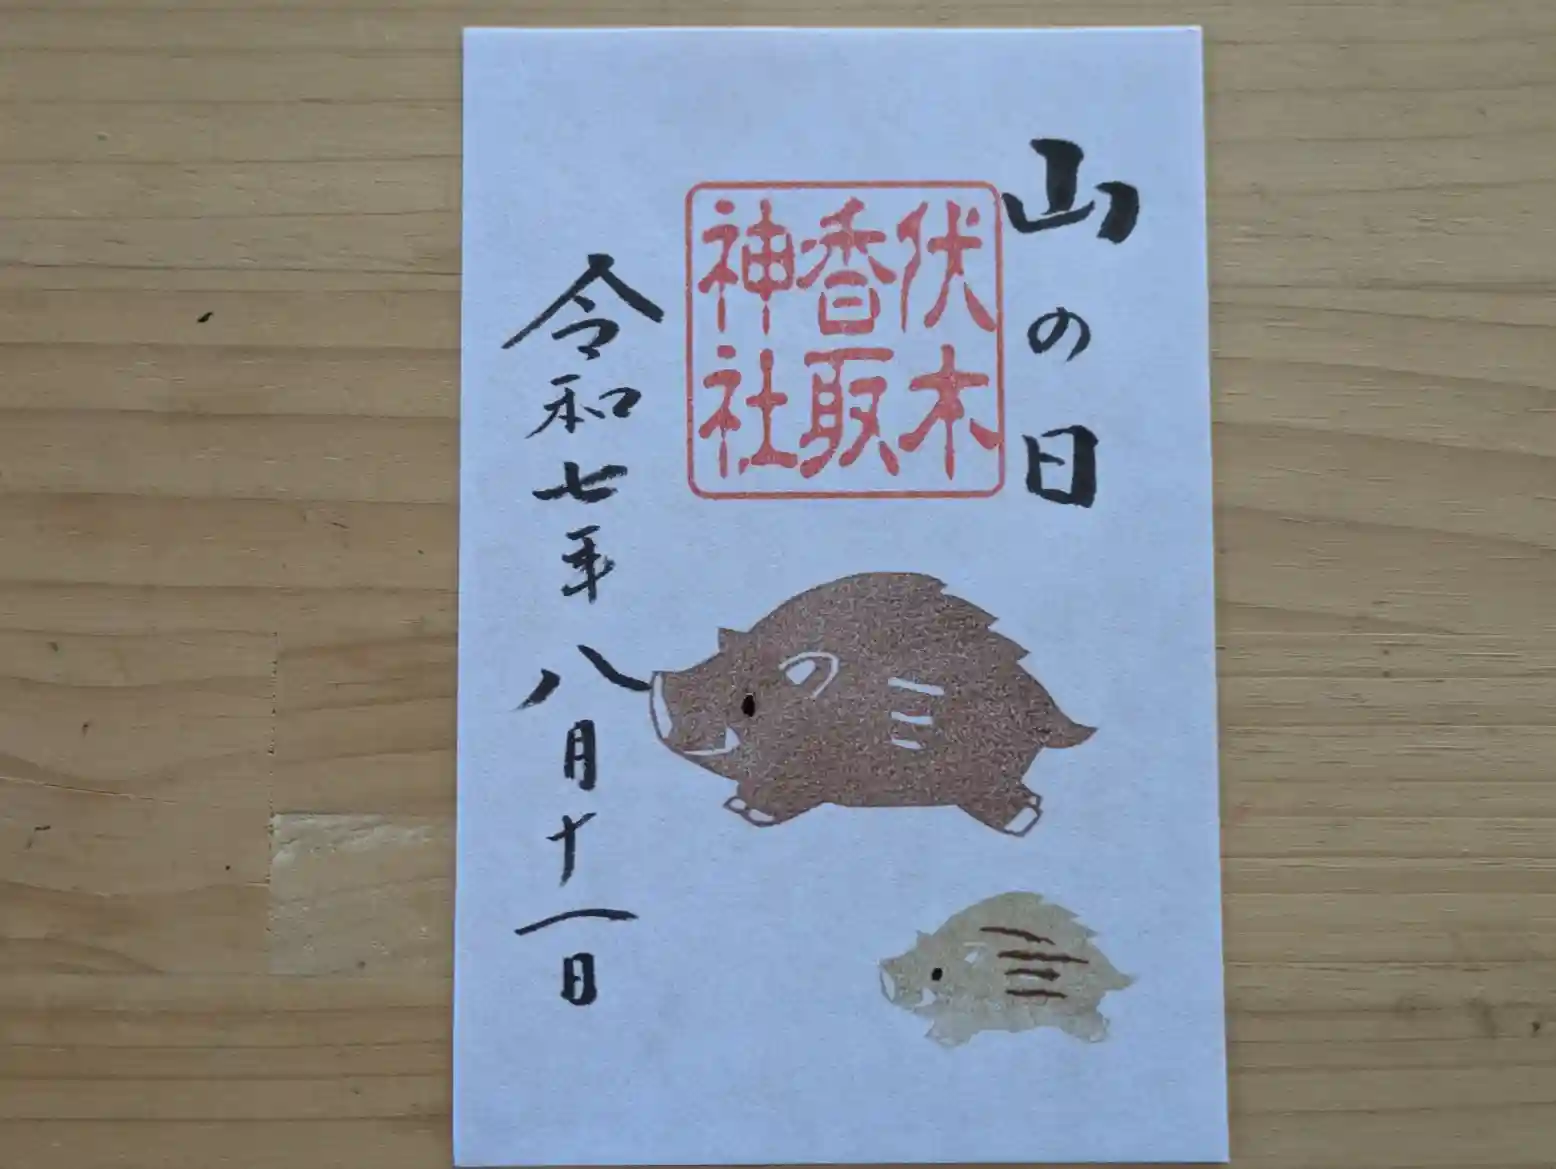 山の日
伏木
香取
神社
令和七年八月十一日